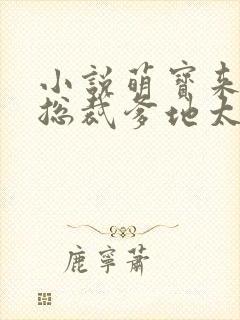 小說萌寶來
總裁爹地太
鹿寧蕭